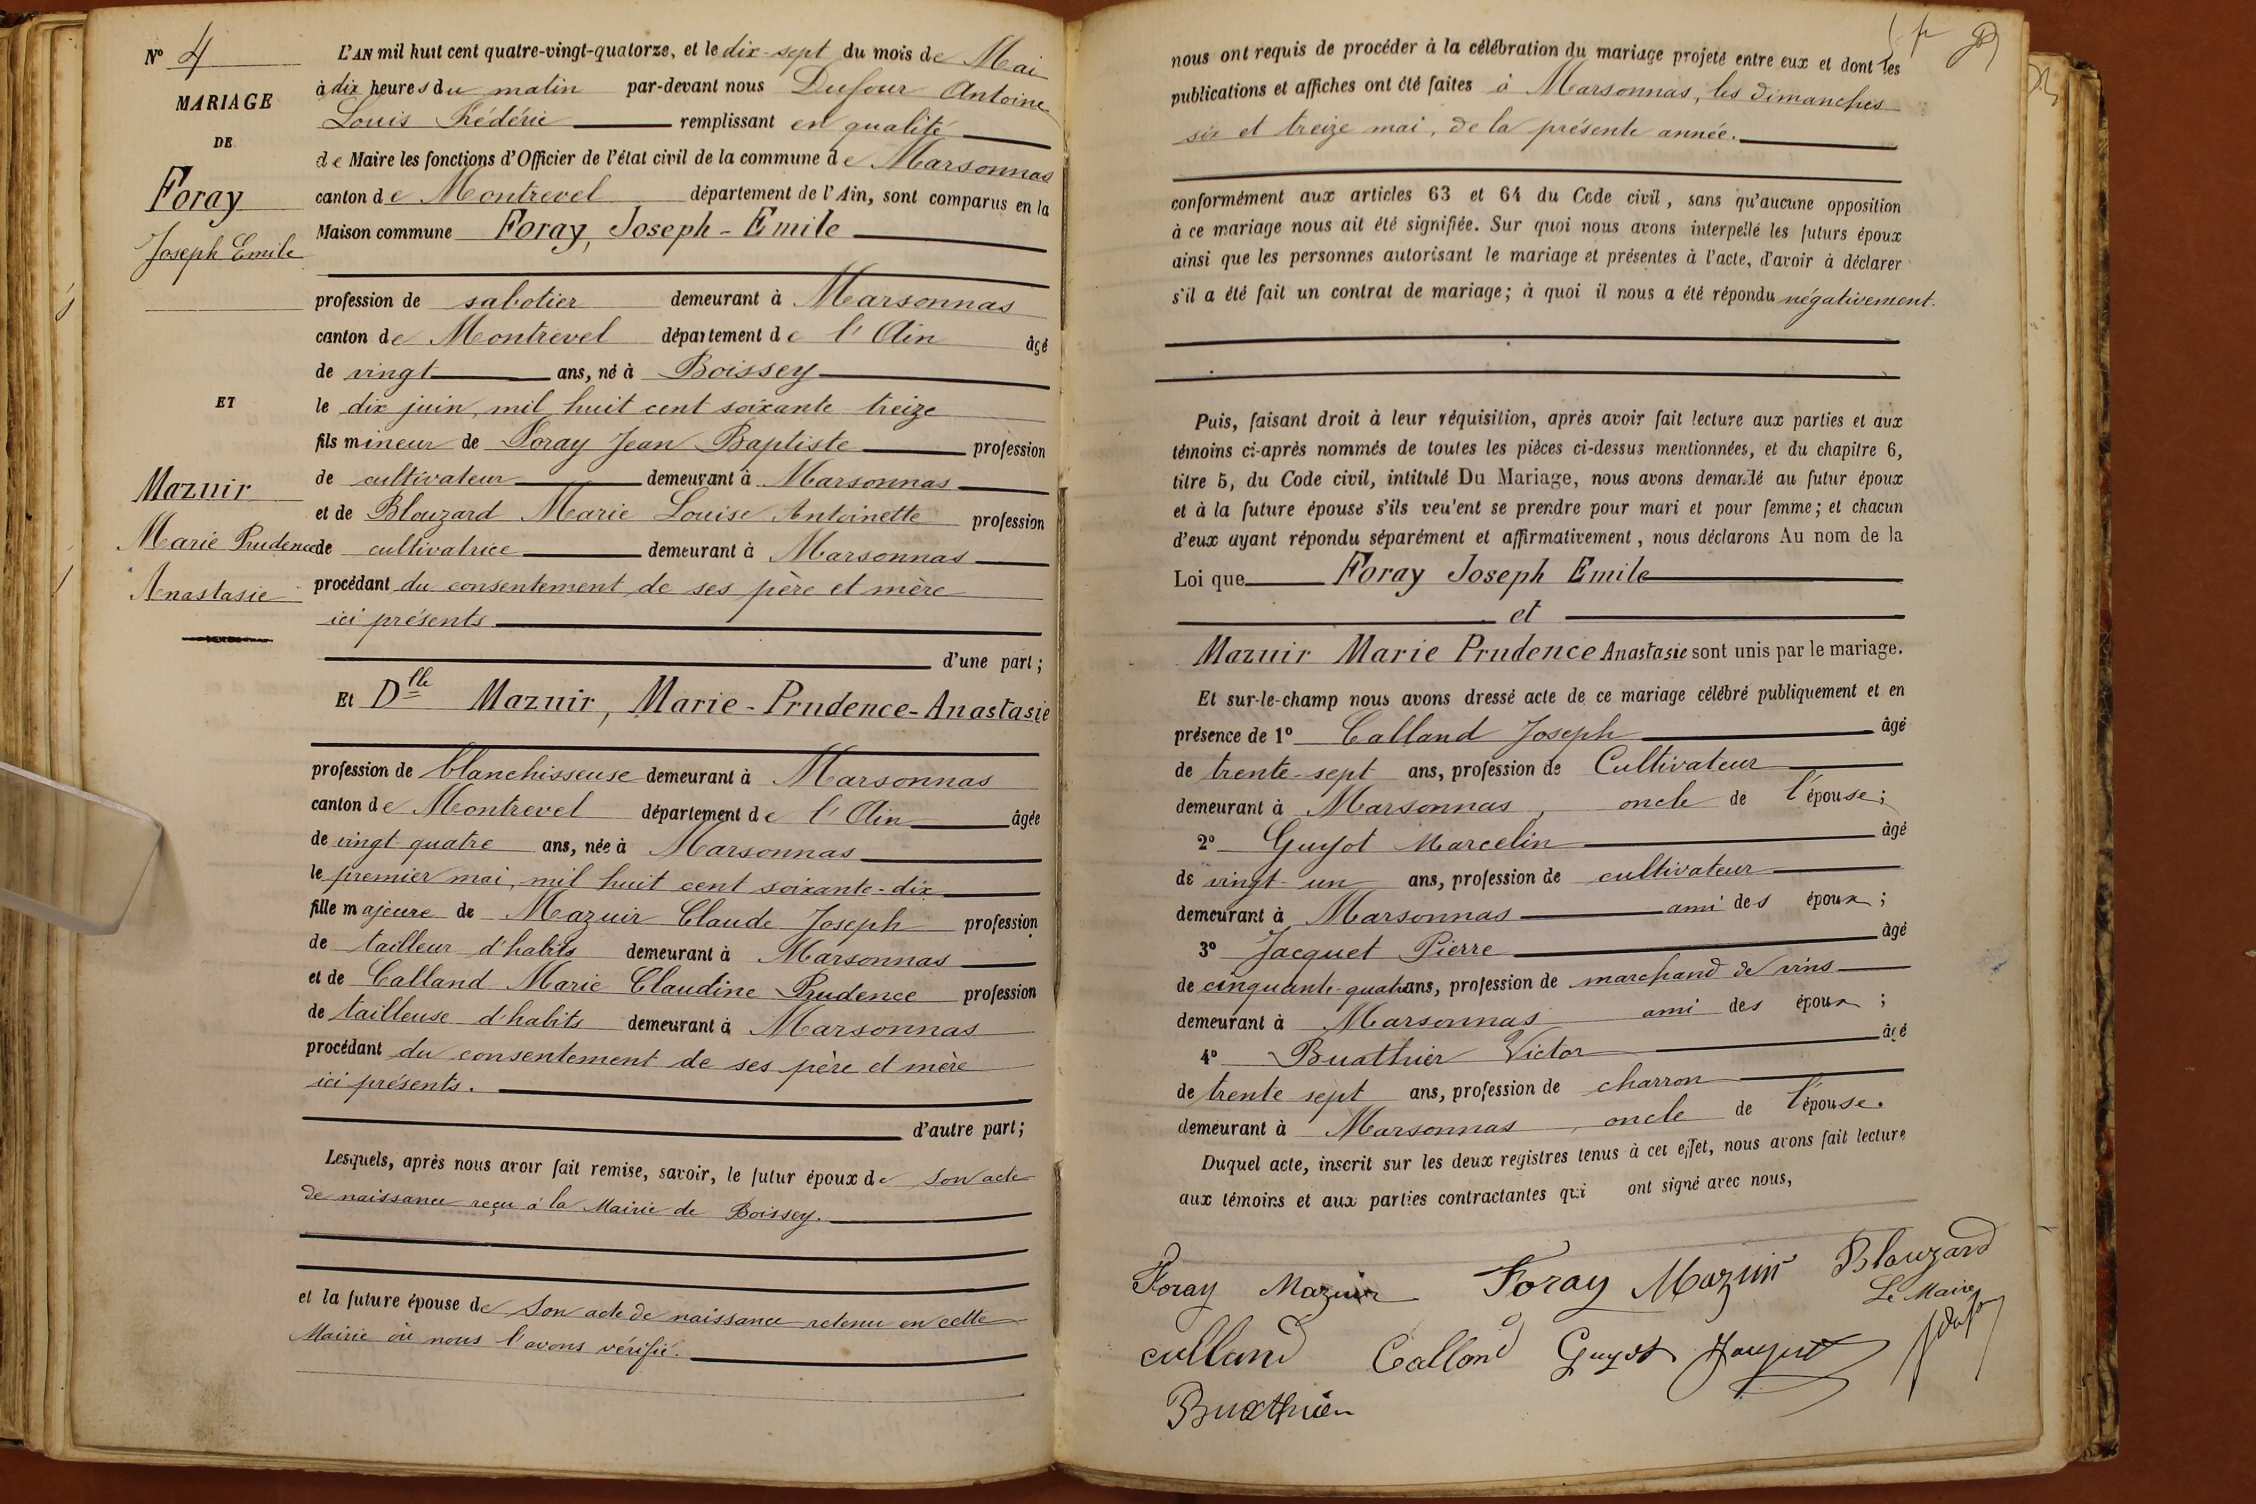 Nº 4
MARIAGE
DE
Foray
Joseph Emile
ET
Mazuir
Marie Prudence
Anastasie
L'AN mil huit cent quatre-vingt-quatorze, et le dix-sept du mois de Mai
à dix heures du matin par-devant nous Dufour Antoine
Louis Frédéric remplissant en qualité
de Maire les fonctions d'Officier de l'état civil de la commune de Marsonnas
canton de Montrevel département de l'Ain, sont comparus en la
Maison commune Foray, Joseph-Emile
profession de sabotier demeurant à Marsonnas
canton de Montrevel département de l'Ain âgé
de vingt ans, né à Boissey
le dix juin, mil huit cent soixante treize
fils mineur de Foray Jean Baptiste profession
de cultivateur demeurant à Marsonnas
et de Blouzard Marie Louise Antoinette profession
de cultivatrice demeurant à Marsonnas
procédant du consentement de ses père et mère
ici présents
d'une part;
Et Dlle Mazuir, Marie-Prudence-Anastasie
profession de blanchisseuse demeurant à Marsonnas
canton de Montrevel département de l'Ain âgée
de vingt quatre ans, née à Marsonnas
le premier mai, mil huit cent soixante-dix
fille majeure de Mazuir Claude Joseph profession
de tailleur d'habits demeurant à Marsonnas
et de Calland Marie Claudine Prudence profession
de tailleuse d'habits demeurant à Marsonnas
procédant du consentement de ses père et mère
ici présents.
d'autre part;
Lesquels, après nous avoir fait remise, savoir, le futur époux de son acte
de naissance reçu à la Mairie de Boissey.
et la future épouse de son acte de naissance retenu en cette
Mairie où nous l'avons vérifié.
nous ont requis de procéder à la célébration du mariage projeté entre eux et dont les
publications et affiches ont été faites à Marsonnas, les dimanches
six et treize mai, de la présente année.
conformément aux articles 63 et 64 du Code civil, sans qu'aucune opposition
à ce mariage nous ait été signifiée. Sur quoi nous avons interpellé les futurs époux
ainsi que les personnes autorisant le mariage et présentes à l'acte, d'avoir à déclarer
s'il a été fait un contrat de mariage; à quoi il nous a été répondu négativement.
Puis, faisant droit à leur réquisition, après avoir fait lecture aux parties et aux
témoins ci-après nommés de toutes les pièces ci-dessus mentionnées, et du chapitre 6,
titre 5, du Code civil, intitulé Du Mariage, nous avons demandé au futur époux
et à la future épouse s'ils veu'ent se prendre pour mari et pour femme; et chacun
d'eux ayant répondu séparément et affirmativement, nous déclarons Au nom de la
Loi que Foray Joseph Emile
et
Mazuir Marie Prudence Anastasie sont unis par le mariage.
Et sur-le-champ nous avons dressé acte de ce mariage célébré publiquement et en
présence de 1º Calland Joseph âgé
de trente-sept ans, profession de Cultivateur
demeurant à Marsonnas, oncle de l'épouse;
2º Guyot Marcelin âgé
de vingt-un ans, profession de cultivateur
demeurant à Marsonnas ami des époux;
3º Jacquet Pierre âgé
de cinquante-quatre ans, profession de marchand de vins
demeurant à Marsonnas ami des époux;
4º Buathier Victor âgé
de trente sept ans, profession de charron
demeurant à Marsonnas, oncle de l'épouse.
Duquel acte, inscrit sur les deux registres tenus à cet effet, nous avons fait lecture
aux témoins et aux parties contractantes qui ont signé avec nous,
Foray Mazuir Foray Mazuir Blouzard
Le Maire
Calland Calland Guyot Jacquet
Buathier